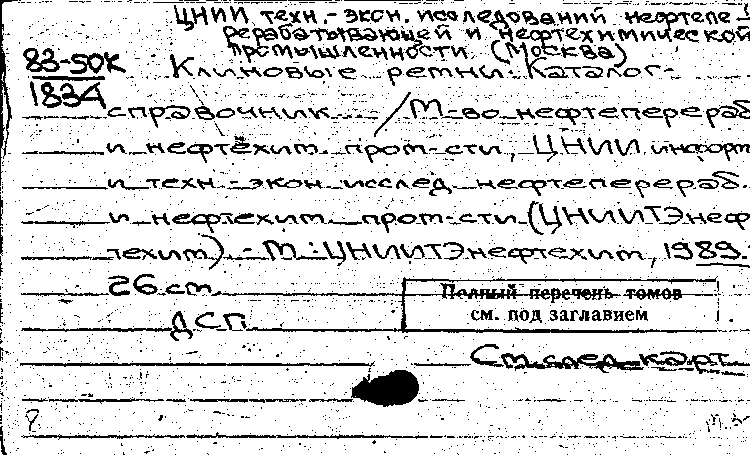 ЦНИИ техн.-экон. исследований нефтепе-
рерабатывающей и нефтехимической
промышленности (Москва)
83-50К
1834
Клиновые ремни: Каталог-
справочник... /М-во нефтеперераб.
и нефтехим. пром-сти, ЦНИИ информ.
и техн.-экон. исслед. нефтеперераб.
и нефтехим. пром-сти (ЦНИИТЭнеф
техим). - М.: ЦНИИТЭнефтехим, 1989.
26 см.
Полный перечень томов
см. под заглавием
ДСП.
См. след. карт.